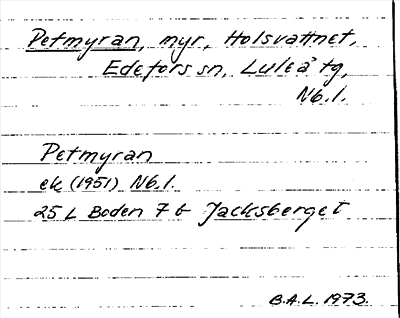 Petmyran, myr, Holsvattnet,
Edefors sn, Luleå tg,
Nb.l.
Petmyran
ek (1951) Nb.l.
25 L Boden 7 b Jacksberget
B.A.L. 1973.